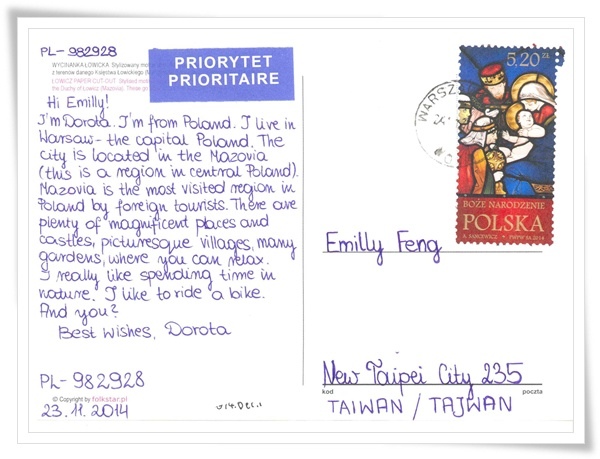 PL-982928
WYCINANKA ŁOWICKA Stylizowany
z terenów danego Księstwa Łowickiego
ŁOWICZ PAPER-CUT-OUT Stylised
the Duchy of Łowicz (Mazovia).
PRIORYTET
PRIORITAIRE
Hi Emilly!
I'm Dorota. I'm from Poland. I live in
Warsaw- the capital Poland. The
city is located in the Mazovia
(this is a region in central Poland).
Mazovia is the most visited region in
Poland by foreign tourists. There are
plenty of magnificent places and
castles, picturesque villages, many
gardens, where you can relax.
I really like spending time in
nature. I like to ride a bike.
And you?
Best Wishes, Dorota
PL-982928
© Copyright by folkstar.pl
23.11.2014
WARSZ
5,20 zł
BOŻE NARODZENIE
POLSKA
PWPW SA 2014
Emilly Feng
New Taipei City 235
kod poczta
TAIWAN / TAJWAN